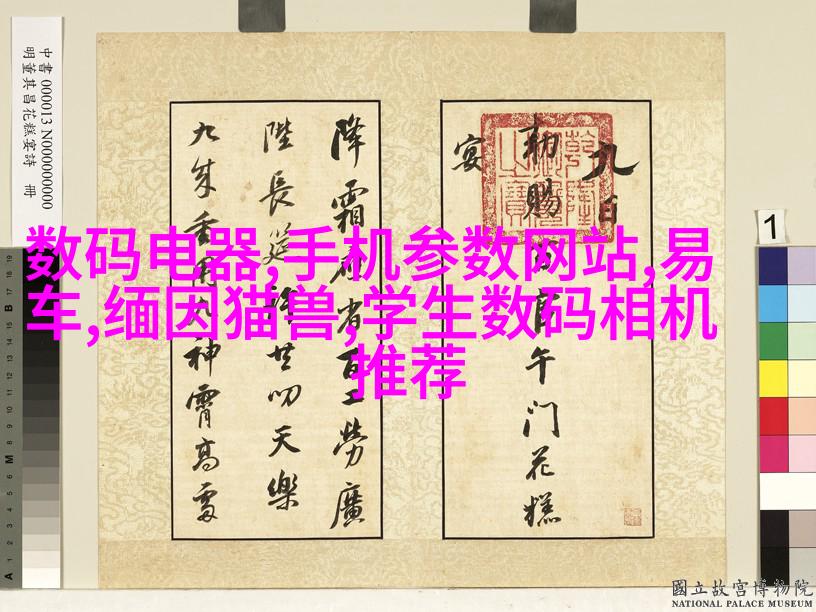 九日
勅賜百官午門花糕
宴
降霜
百工勞廣
陛長筵
共叨天樂
九
重
神霄高
數码电器,手机参数网站,易
车,缅因猫兽,学生数码相机
推荐
中書 000013 N000000000
明董其昌花糕宴詩 冊
1
國立故宮博物院
NATIONAL PALACE MUSEUM